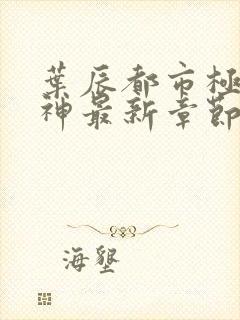 葉辰都市極
神最新章節
海墾